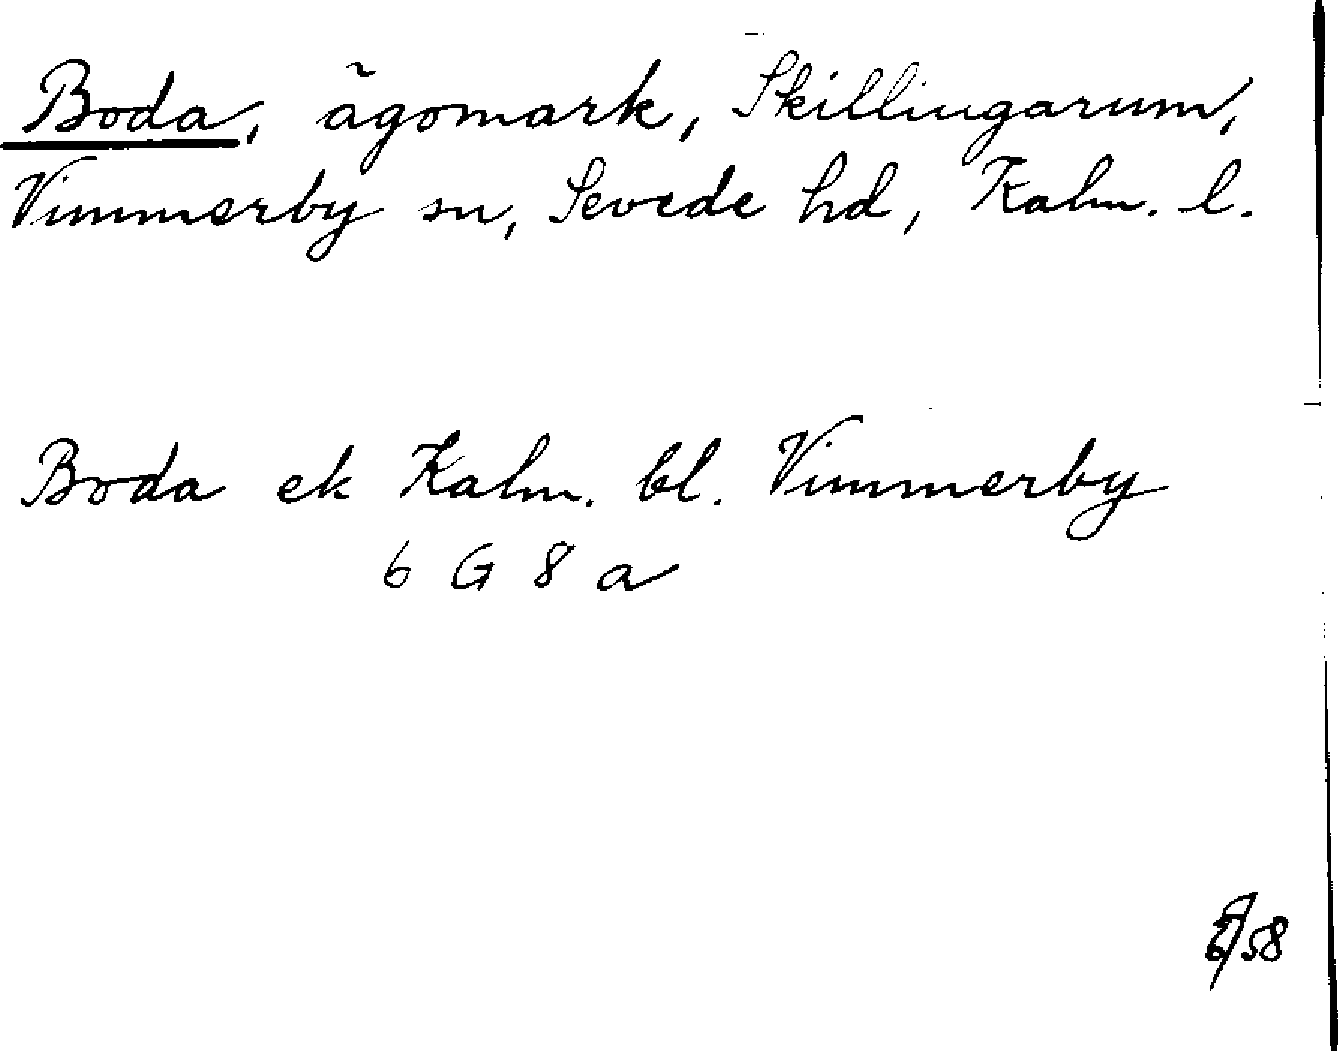 Boda, ägomark, Skillingarum,
Vimmerby sn, Sevede hd, Kalm. l.
Boda ek Kalm. bl. Vimmerby
6 G 8 a